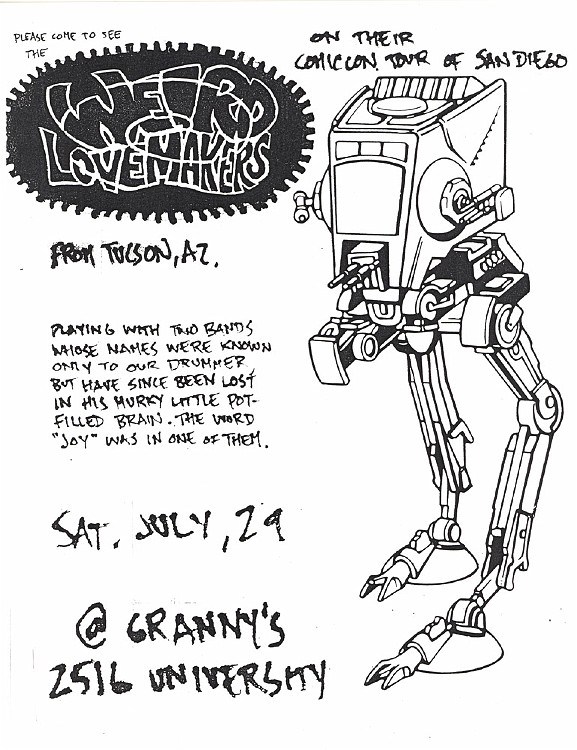 PLEASE COME TO SEE
THE
WEIRD
LOVEMAKERS
ON THEIR
COMICCON TOUR OF SAN DIEGO
FROM TUCSON, AZ.
PLAYING WITH TWO BANDS
WHOSE NAMES WERE KNOWN
ONLY TO OUR DRUMMER
BUT HAVE SINCE BEEN LOST
IN HIS MURKY LITTLE POT-
FILLED BRAIN. THE WORD
"JOY" WAS IN ONE OF THEM.
SAT. JULY, 29
@ GRANNY'S
2516 UNIVERSITY